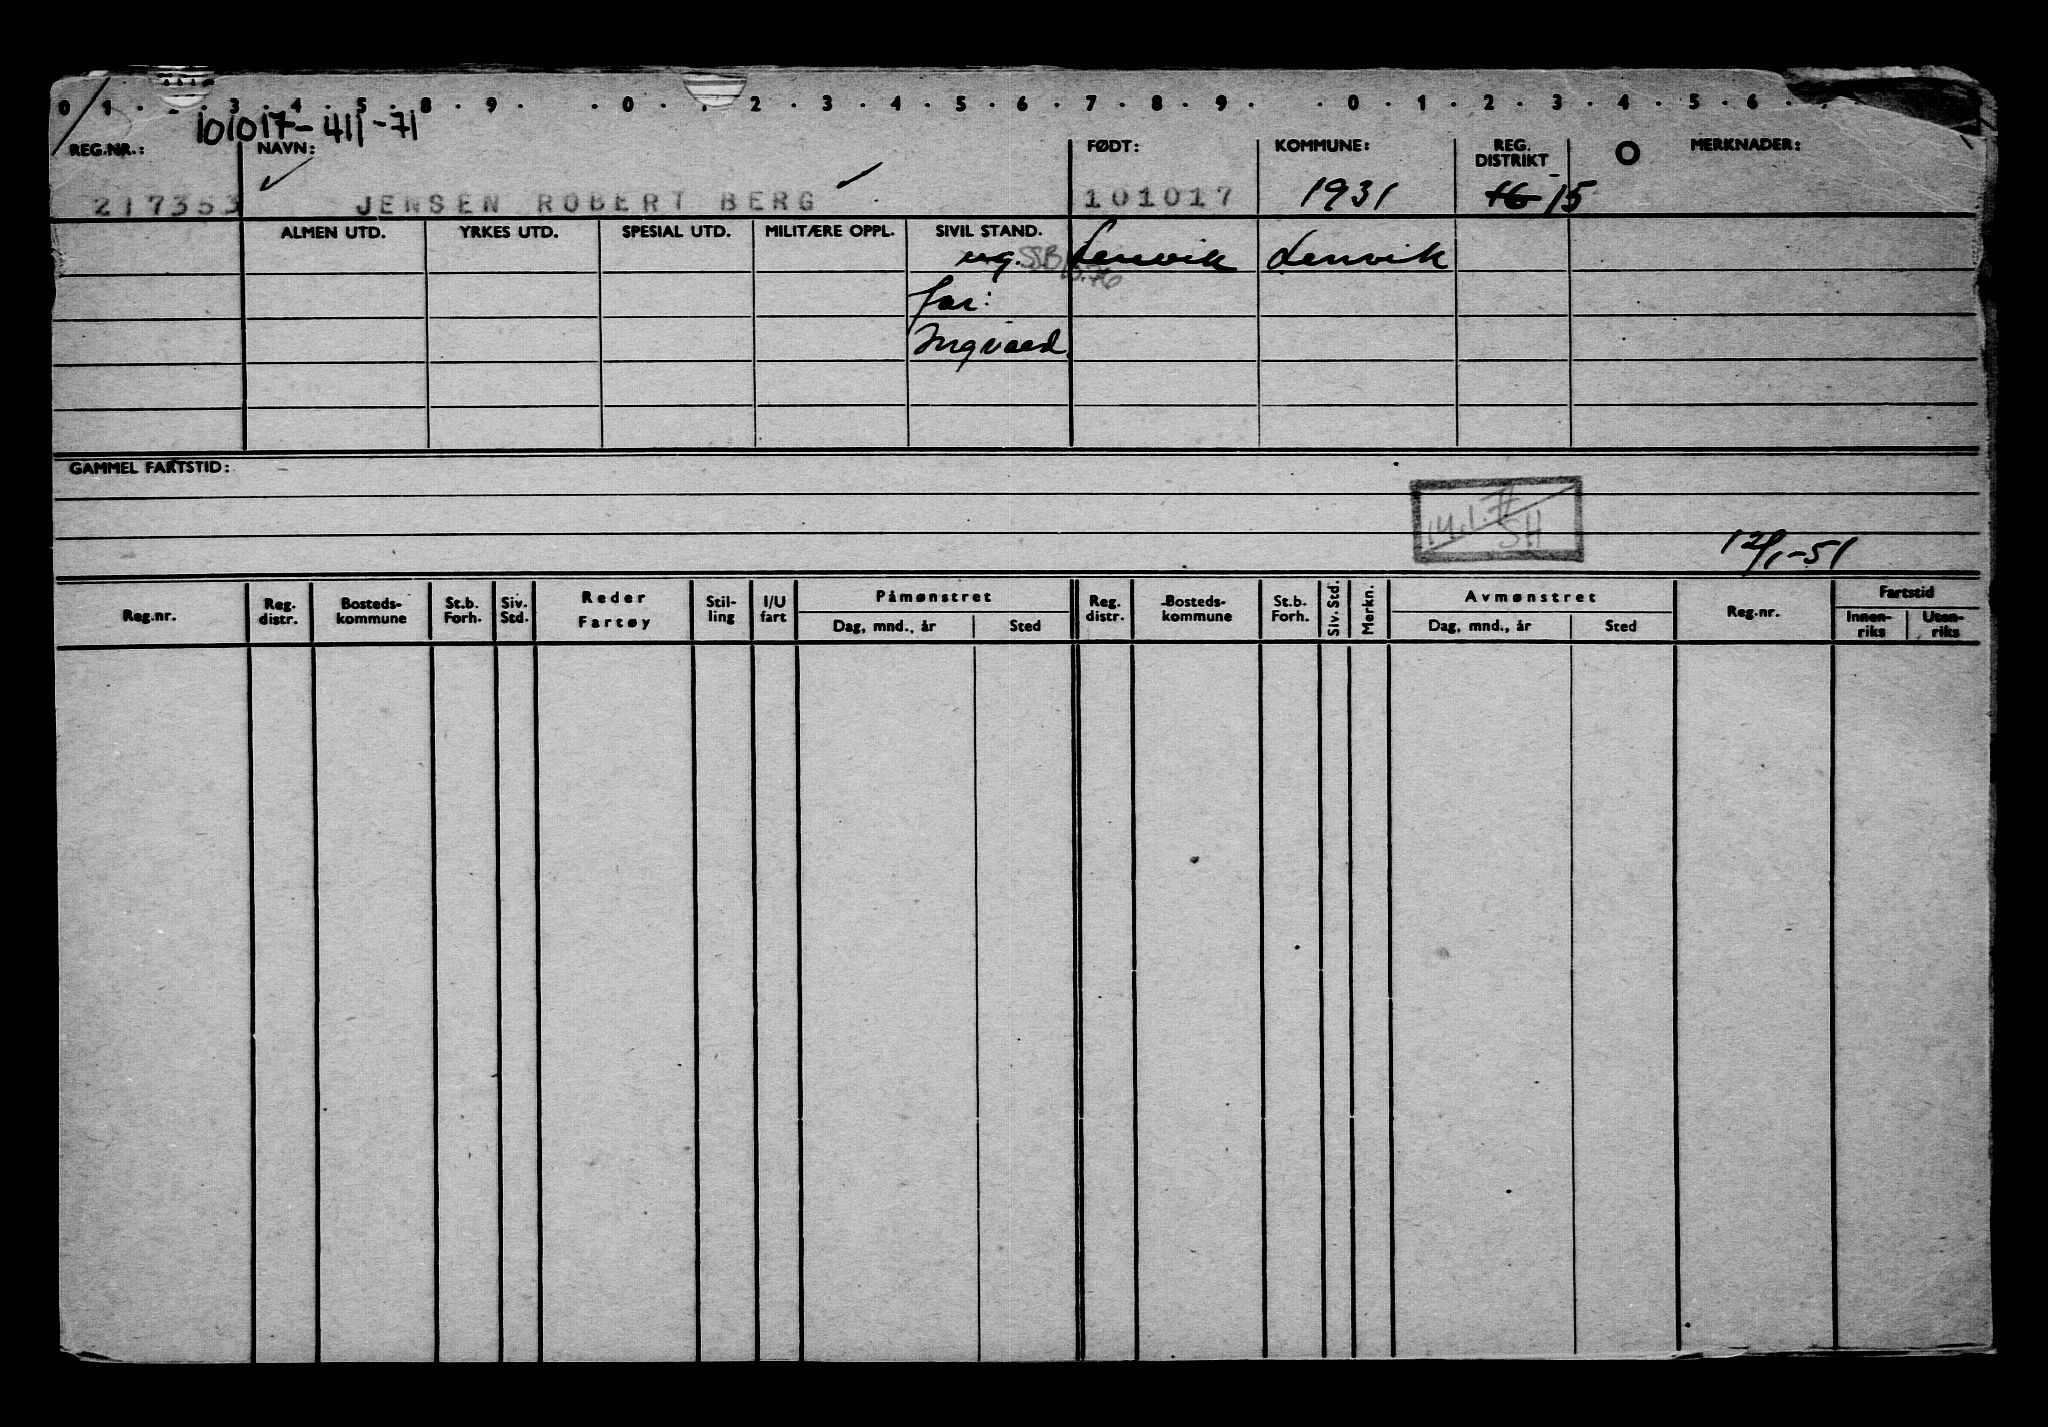 0 1 . 2 . 3 . 4 . 5 . 8 . 9 . . 0 . . 2 . 3 . 4 . 5 . 6 . 7 . 8 . 9 . . 0 . 1 . 2 . 3 . 4 . 5 . 6 .
101017-411-71
REG.NR.: NAVN: FØDT: KOMMUNE: REG. DISTRIKT O MERKNADER:
217353 JENSEN ROBERT BERG 101017 1931 16 15
ALMEN UTD. YRKES UTD. SPESIAL UTD. MILITÆRE OPPL. SIVIL STAND.
ug. SSB Lenvik Lenvik
far:
Ingvald
GAMMEL FARTSTID:
14.1.71
SH
12/1-51
Reg.nr. Reg. distr. Bosteds- kommune St.b. Forh. Siv. Std. Reder Fartøy Stil- ling I/U fart Påmønstret Dag, mnd., år Sted Reg. distr. Bosteds- kommune St.b. Forh. Siv. Std. Merkn. Avmønstret Dag, mnd., år Sted Reg.nr. Fartstid Innen- riks Uten- riks